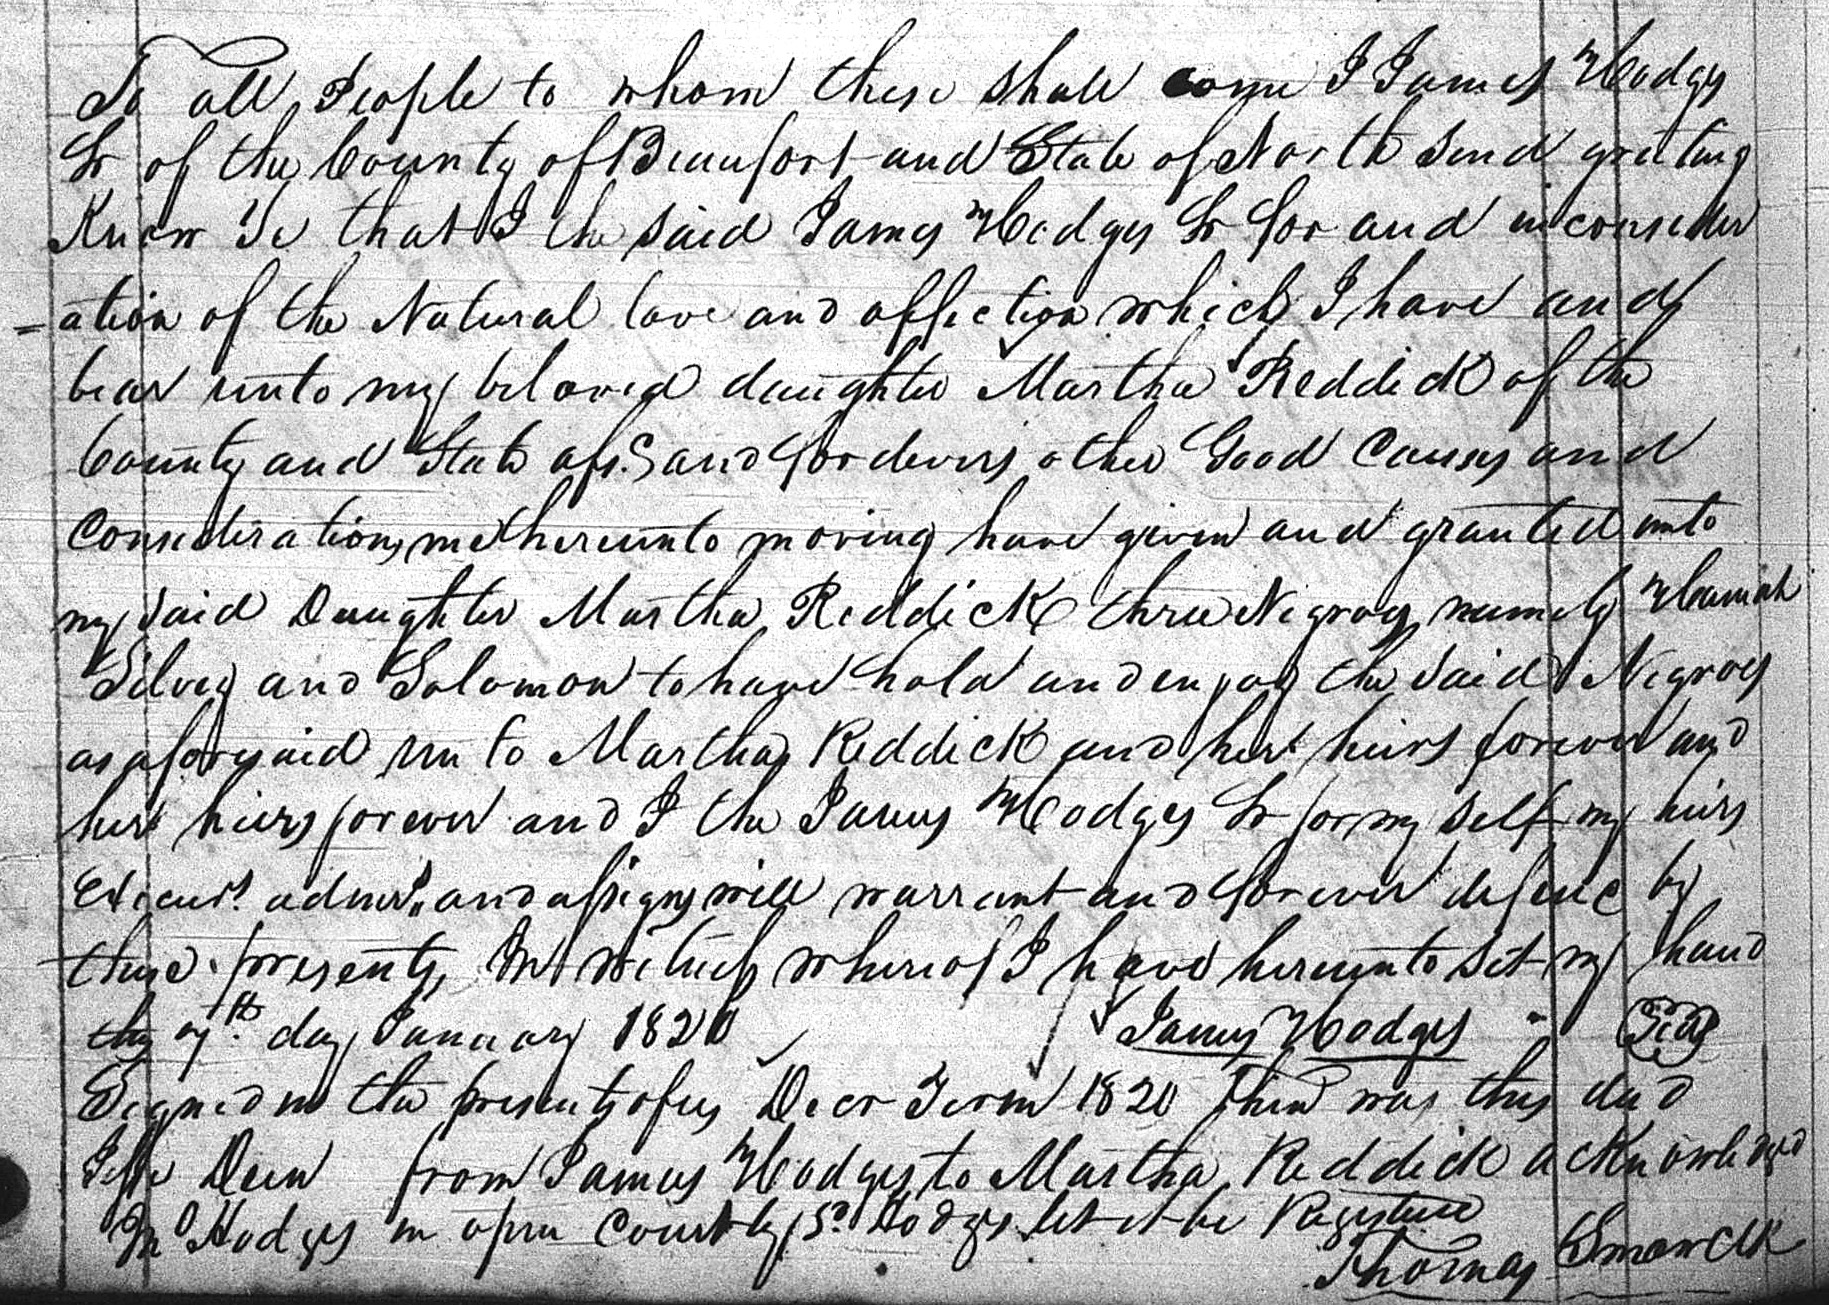 To all People to whom these shall come I James Hodges
Sr of the County of Beaufort and State of North Send greeting
Know Ye that I the said James Hodges Sr for and in consider
=ation of the Natural love and affection which I have and
bear unto my beloved daughter Martha Reddick of the
County and State afs.d and for divers other Good Causes and
Considerations me hereunto moving have given and granted unto
my said Daughter Martha Reddick three Negroes namely Hannah
Silvey and Solomon to have hold and enjoy the said Negroes
as aforesaid unto Martha Reddick and her heirs forever and
her heirs forever and I the James Hodges Sr for my self my heirs
Execurs. admrs. and assigns will warrant and forever defend by
these presents, In witness whereof I have hereunto set my hand
this 7th day January 1820 James Hodges Seal
Signed in the presents of us Decr Term 1820 Then was this deed
Jesse Deen from James Hodges to Martha Reddick acknowledged
Hodges in open Court by Hodges let it be Registered
Thomas Smaw Clk